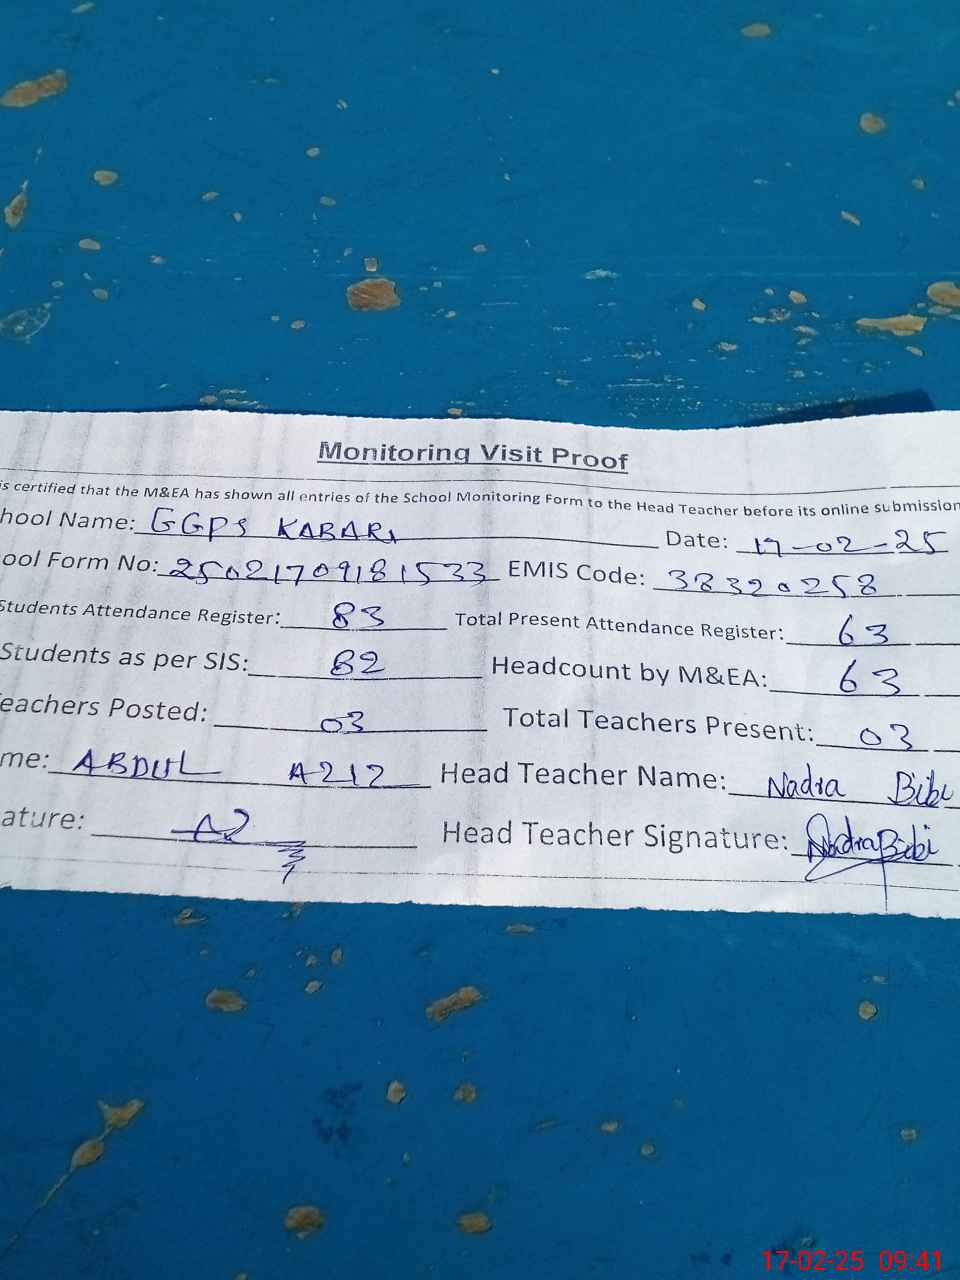 Monitoring Visit Proof
is certified that the M&EA has shown all entries of the School Monitoring Form to the Head Teacher before its online submission
hool Name: GGPS KABARI Date: 17-02-25
ool Form No: 25021709181533 EMIS Code: 38320258
Students Attendance Register: 83 Total Present Attendance Register: 63
Students as per SIS: 82 Headcount by M&EA: 63
eachers Posted: 03 Total Teachers Present: 03
me: ABDUL AZIZ Head Teacher Name: Nadra Bibi
ature: AZ Head Teacher Signature: Nadra Bibi
17-02-25 09:41